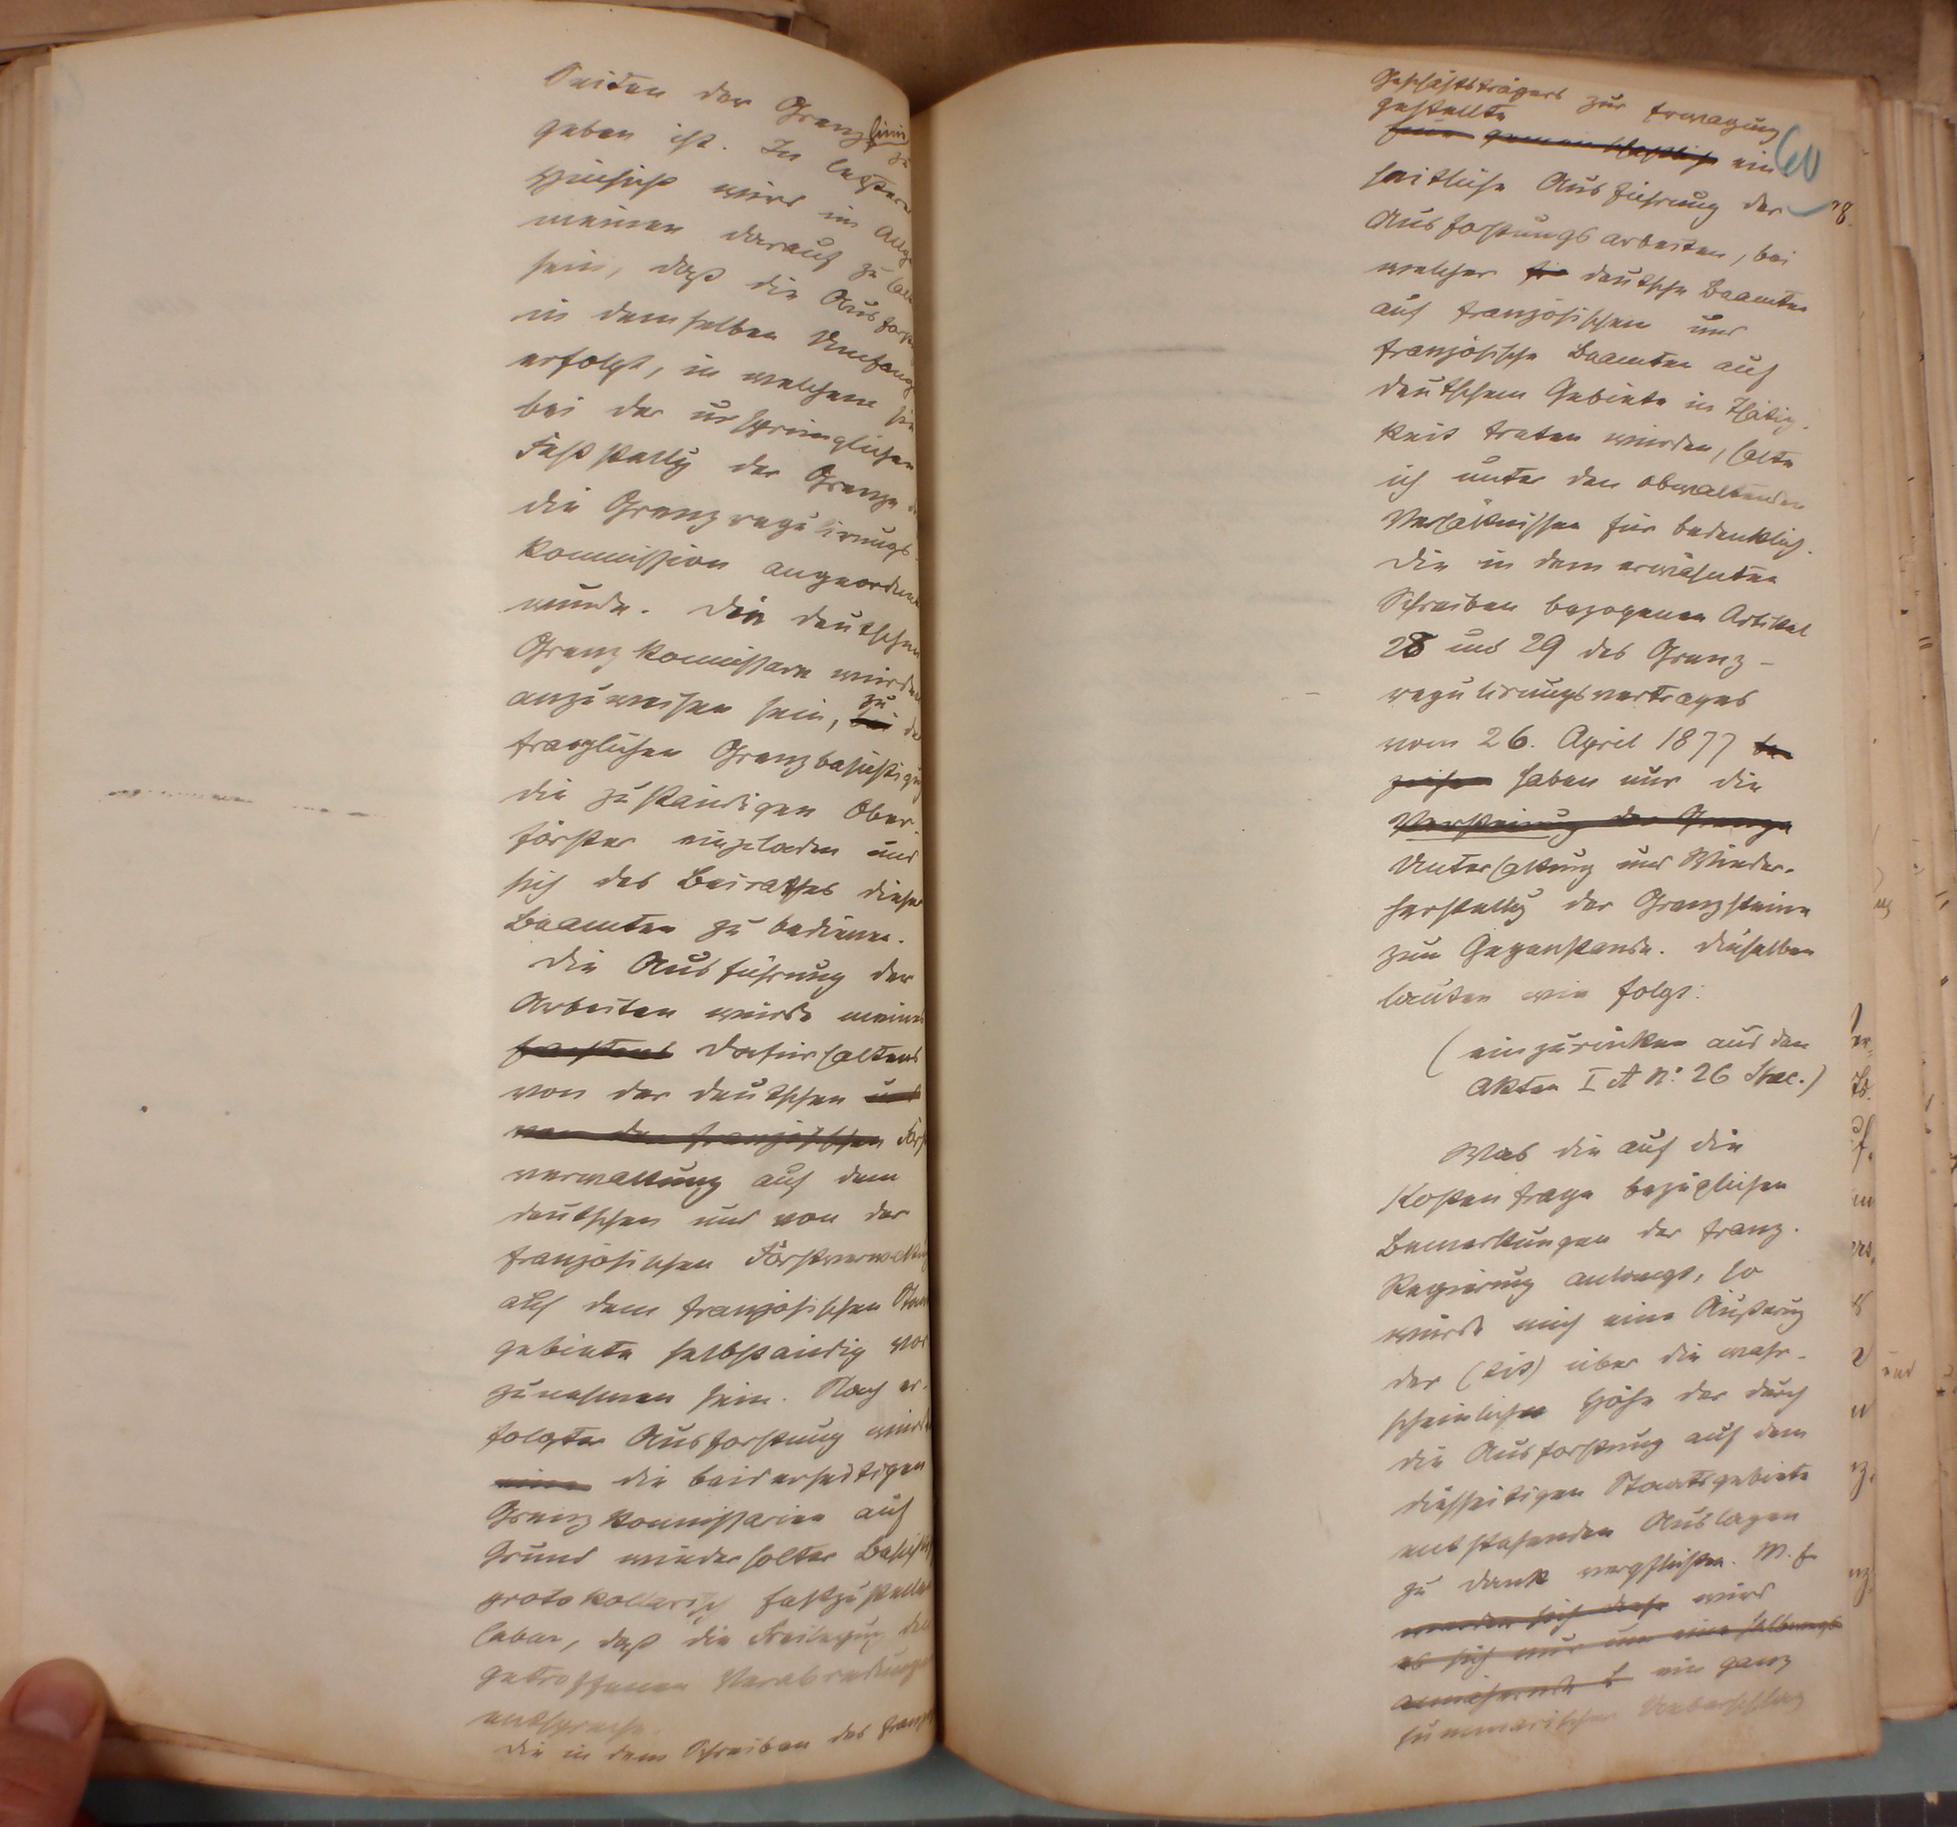 Seiten der Grenzlinie zu
geben ist. In letzterer
Hinsicht wird im Allge
meinen darauf zu
sein, daß die
in demselben Umfang
erfolgt, in welchem sie
bei der ursprünglichen
Feststellg der Grenze
die Grenzregulirungs
kommission angeordnet
wurde. Die deutschen
Grenzkommissare würden
anzuweisen sein, zu
fraglichen Grenzbesichtigung
die zuständigen Ober-
förster einzuladen und
sich des Beirathes dieser
Beamten zu bedienen.
Die Ausführung der
Arbeiten würde meines
Dafürhaltens
von der deutschen und
von der französischen Forst
verwaltung auf dem
deutschen und von der
französischen Forstverwaltung
auf dem französischen Staats
gebiete selbständig vor
zunehmen sein. Nach er-
folgter Ausforstung würden
die beiderseitigen
Grenzkommissarien auf
Grund wiederholter
protokollarisch festzustellen
haben, daß die Freilegung den
getroffenen Verabredungen
entspreche.
Die in dem Schreiben des franz
Geschäftsträgers zur Erwägung
gestellte
eine gemeinschaftliche ein
heitliche Ausführung der
Ausforstungsarbeiten, bei
welcher deutsche Beamten
auf französischem und
französische Beamten auf
deutschem Gebiete in Thätig-
keit treten würden, halte
ich unter den obwaltenden
Verhältnissen für bedenklich.
Die in dem erwähnten
Schreiben bezogenen Artikel
28 und 29 des Grenz-
regulirungsvertrages
vom 26. April 1877 be
ziehen haben nur die
Versteinung der Grenze
Unterhaltung und Wieder-
herstellg der Grenzsteine
zum Gegenstande. Dieselben
lauten wie folgt:
(einzurücken aus den
Akten I A No: 26 )
Was die auf die
Kostenfrage bezüglichen
Bemerkungen der franz.
Regierung anlangt, so
würde mich eine Äußerung
der (tit) über die wahr-
scheinliche Höhe der durch
die Ausforstung auf dem
diesseitigen Staatsgebiete
entstehenden Auslagen
zu Dank verpflichten. M. E
werden sich diese wird
es sich nur um eine
annähernde ein ganz
summarischer Ueberschlag
60